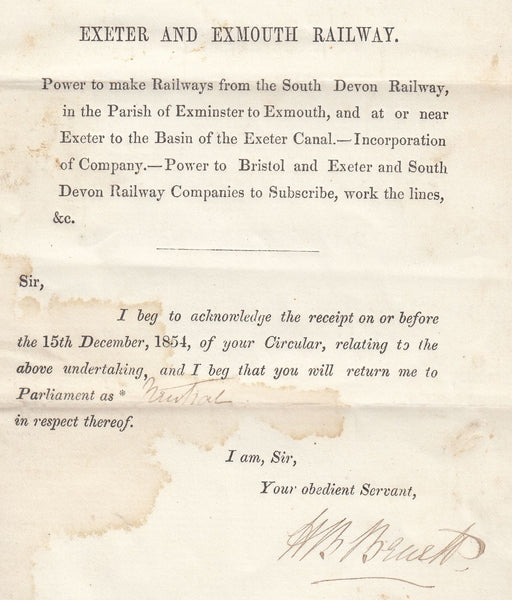 EXETER AND EXMOUTH RAILWAY.
Power to make Railways from the South Devon Railway,
in the Parish of Exminster to Exmouth, and at or near
Exeter to the Basin of the Exeter Canal.—Incorporation
of Company.—Power to Bristol and Exeter and South
Devon Railway Companies to Subscribe, work the lines,
&c.
Sir,
I beg to acknowledge the receipt on or before
the 15th December, 1854, of your Circular, relating to the
above undertaking, and I beg that you will return me to
Parliament as * Neutral
in respect thereof.
I am, Sir,
Your obedient Servant,
H B